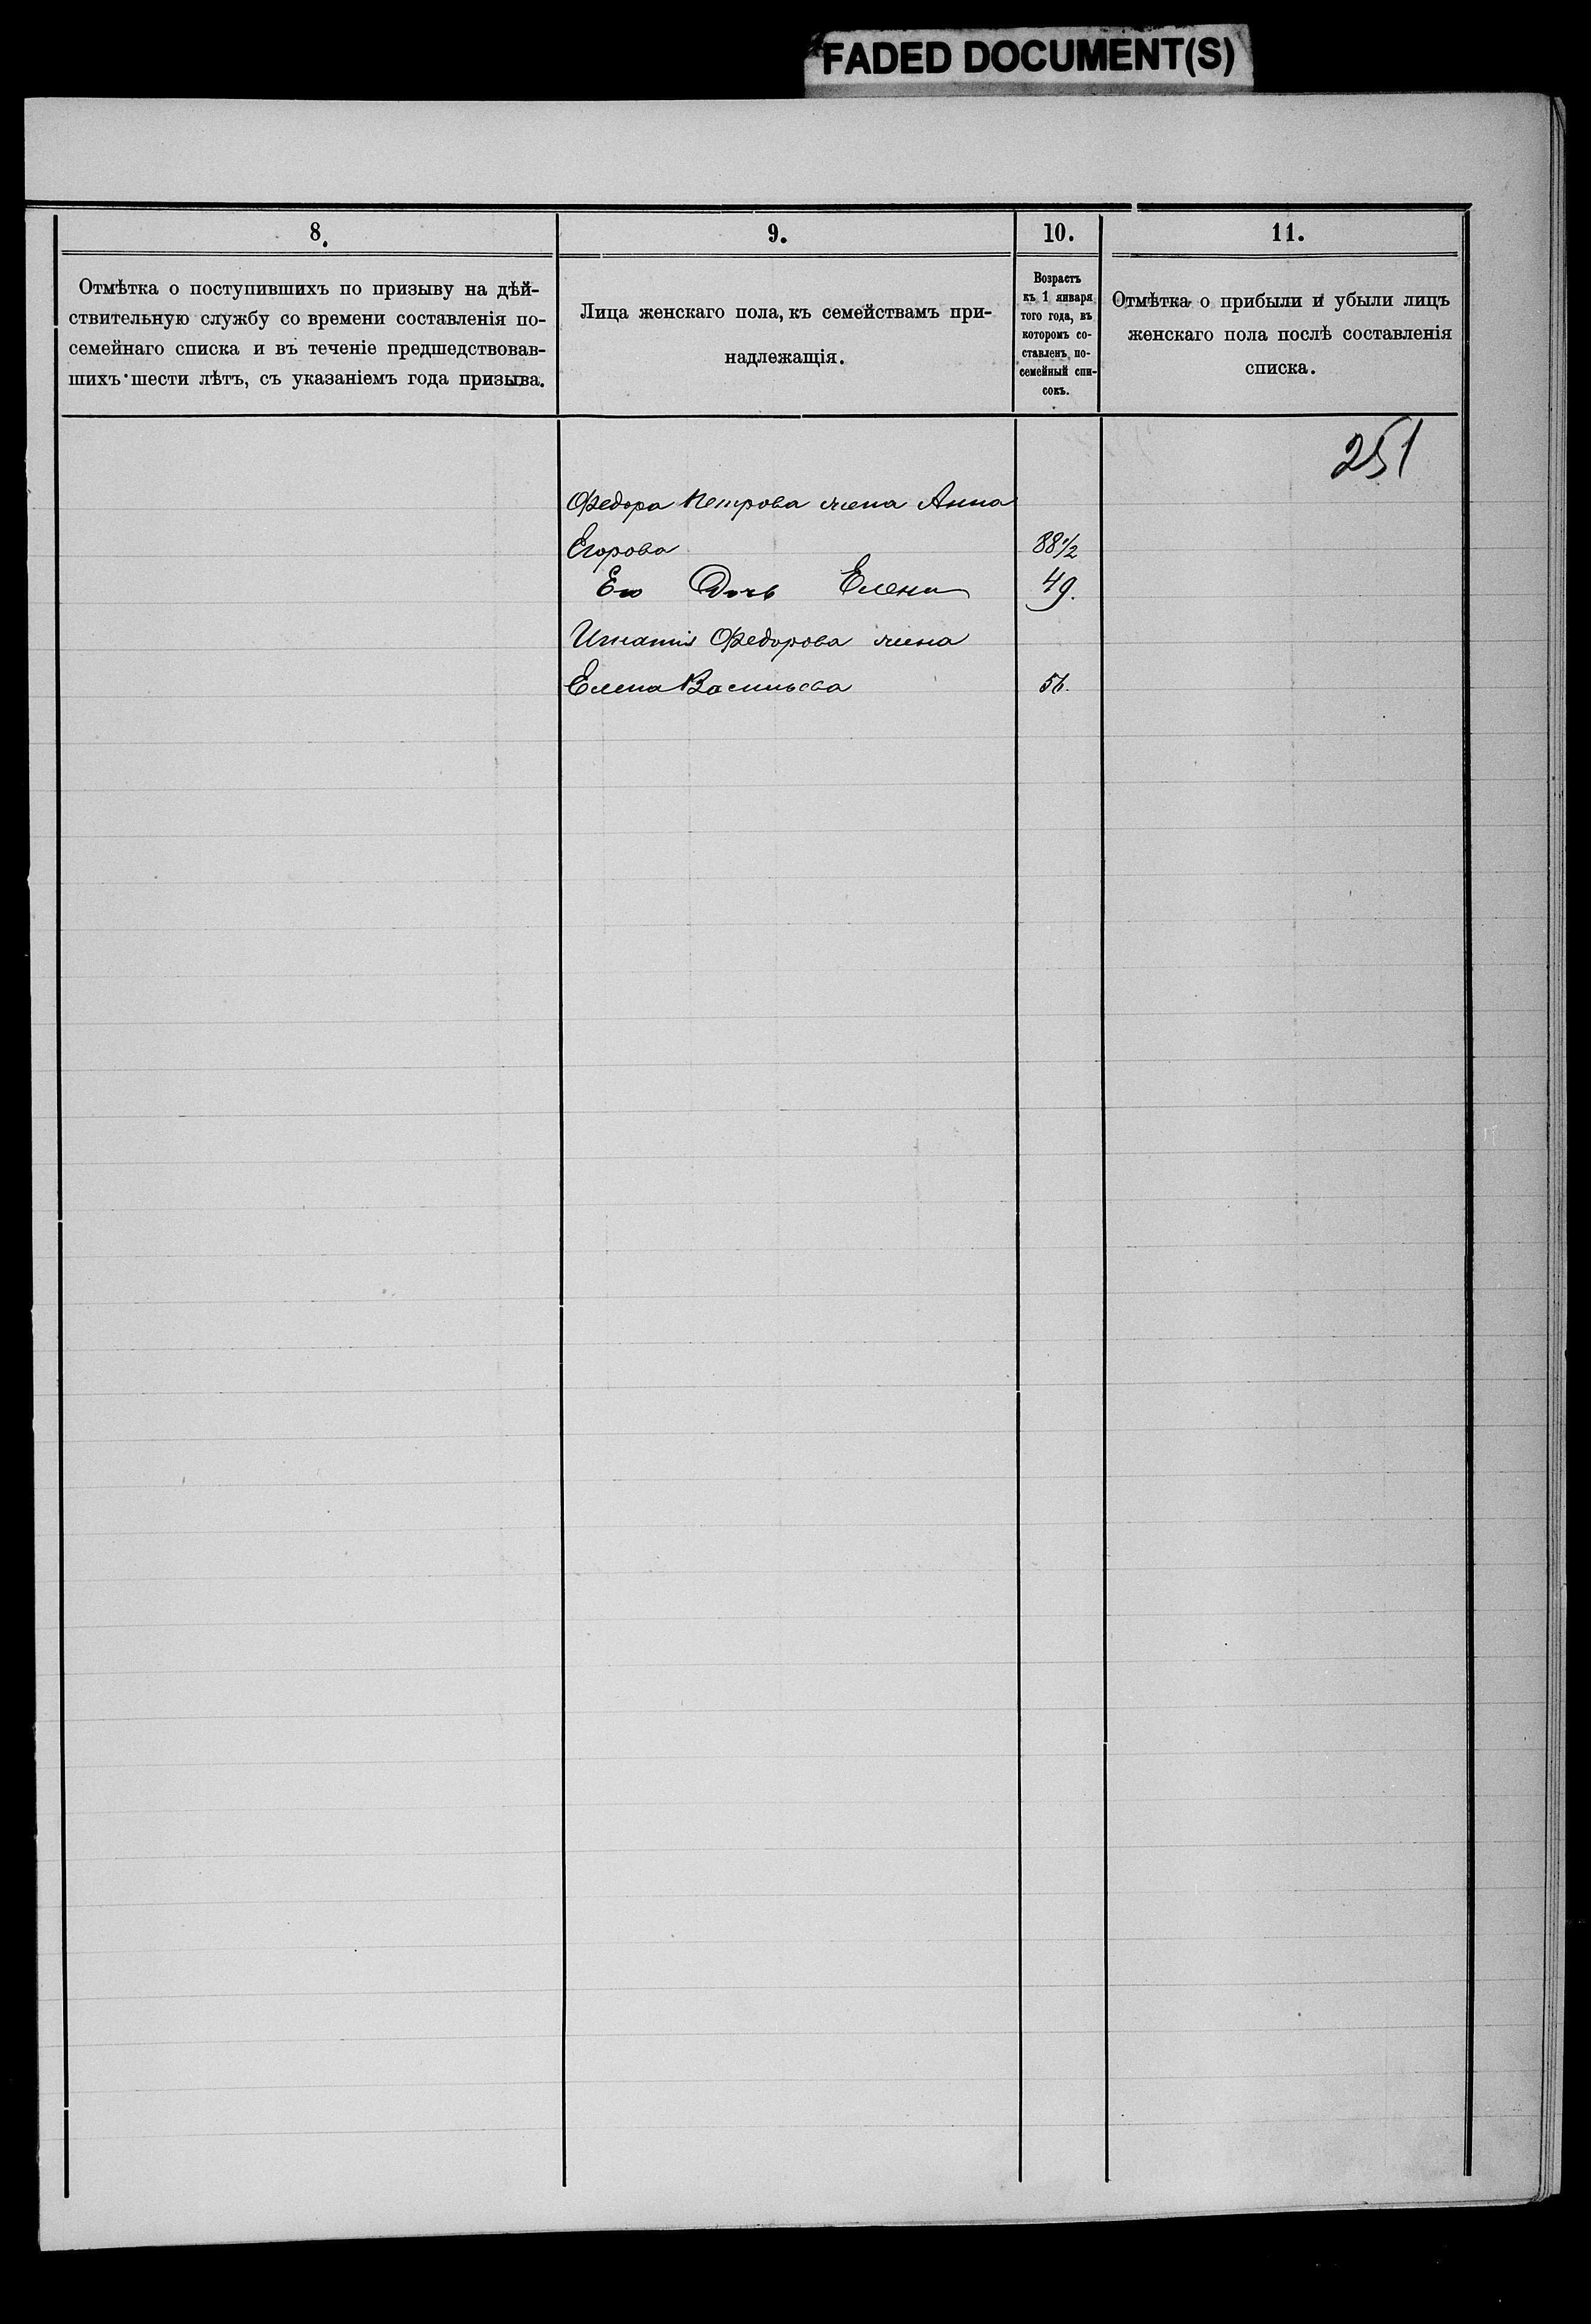 FADED DOCUMENT(S)
8.
9.
10.
11.
Отмѣтка о поступившихъ по призыву на дѣй-
ствительную службу со времени составленія по-
семейнаго списка и въ теченіе предшедствовав-
шихъ шести лѣтъ, съ указаніемъ года призыва.
Лица женскаго пола, къ семействамъ при-
надлежащія.
Возрастъ
къ 1 января
того года, въ
которомъ со-
ставленъ по-
семейный спи-
сокъ.
Отмѣтка о прибыли и убыли лицъ
женскаго пола послѣ составленія
списка.
251
Федора Петрова жена Анна
Егорова 88½
Его Дочь Елена 49.
Игнатія Федорова жена
Елена Васильева 56.